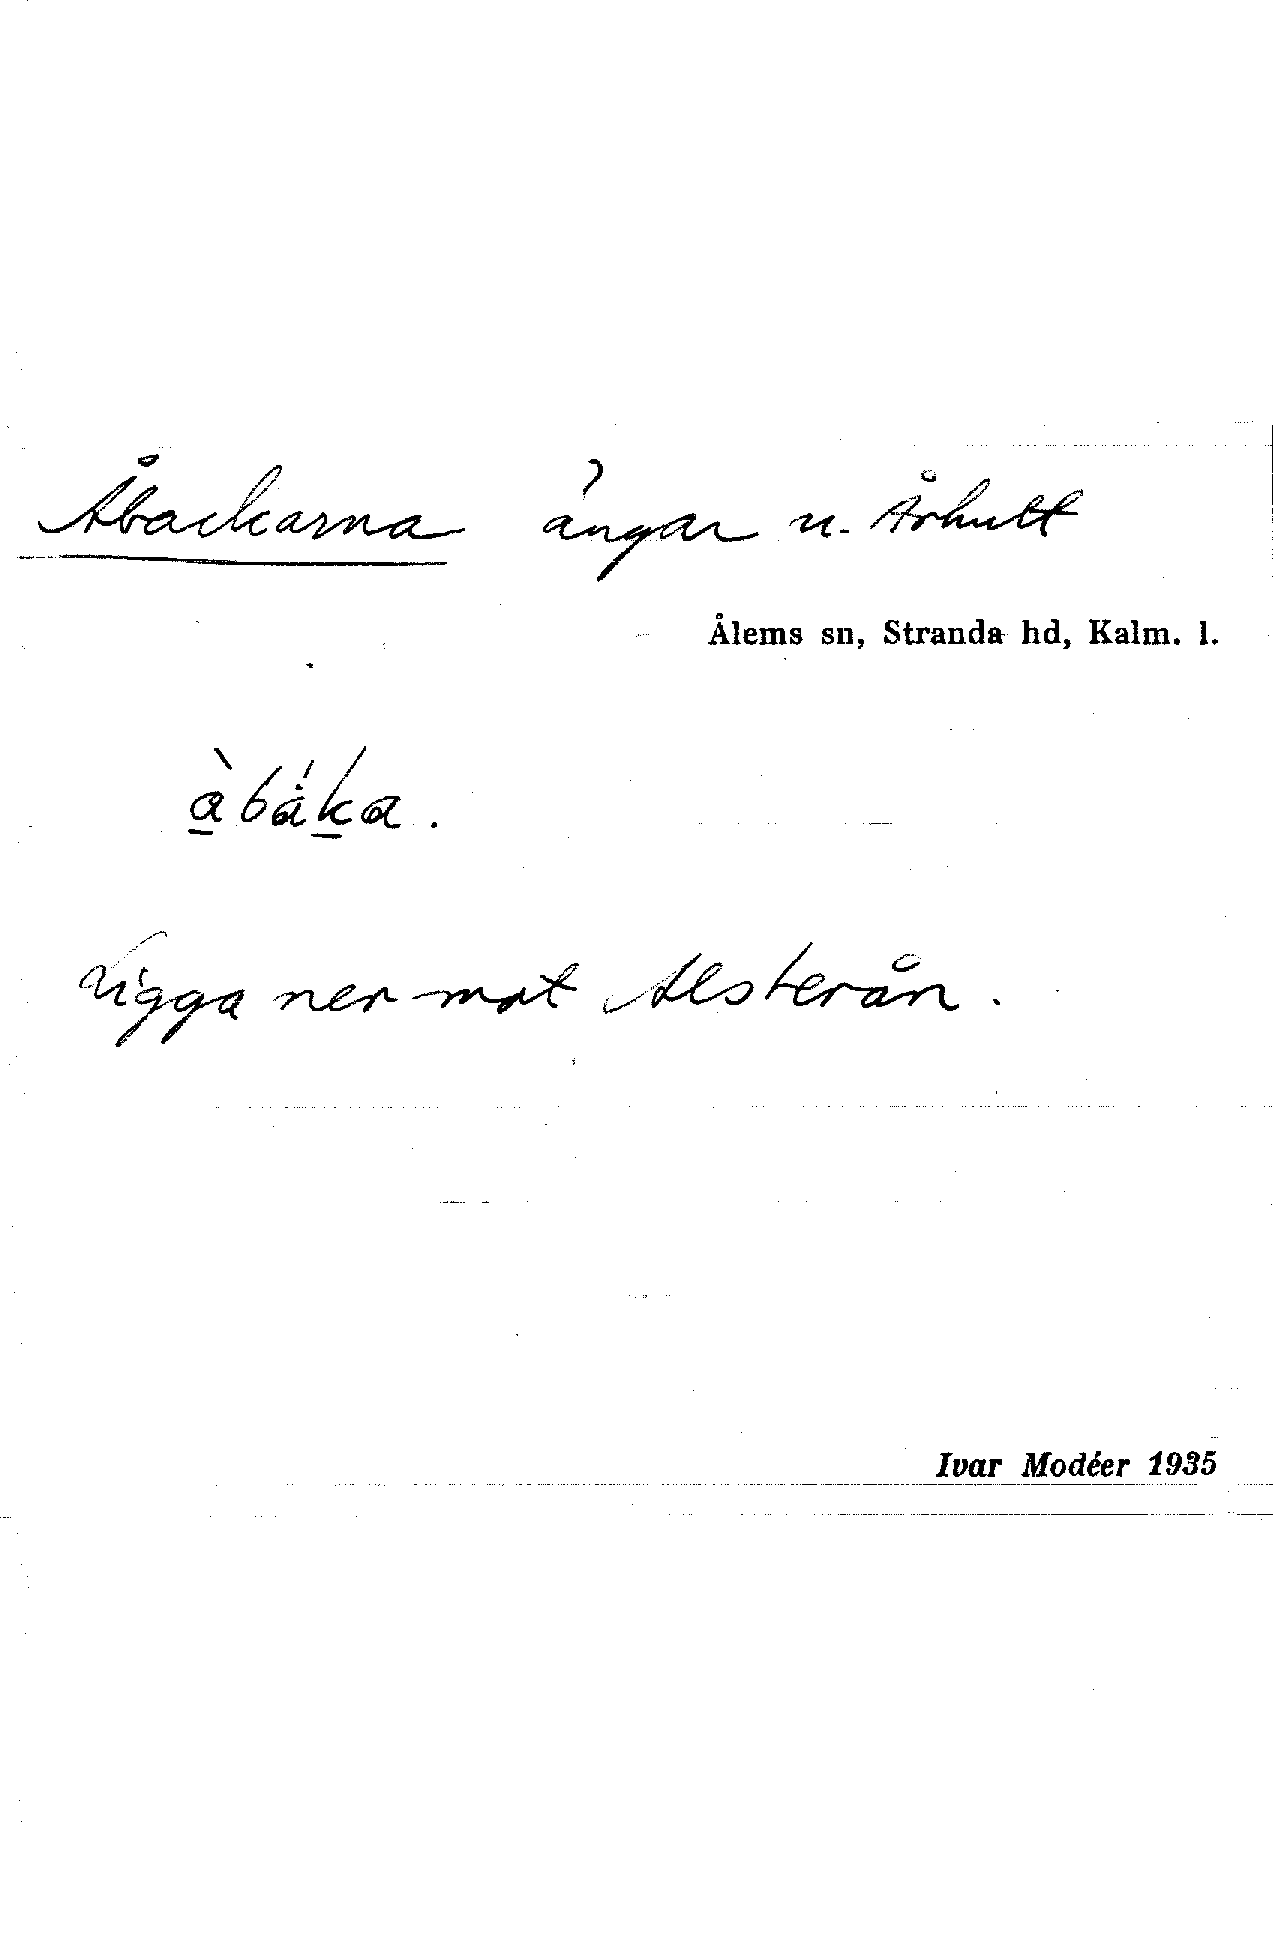 Åbackarna ängar u. Århult
Ålems sn, Stranda hd, Kalm. l.
àbáka.
Ligga ner mot Alsterån.
Ivar Modéer 1935